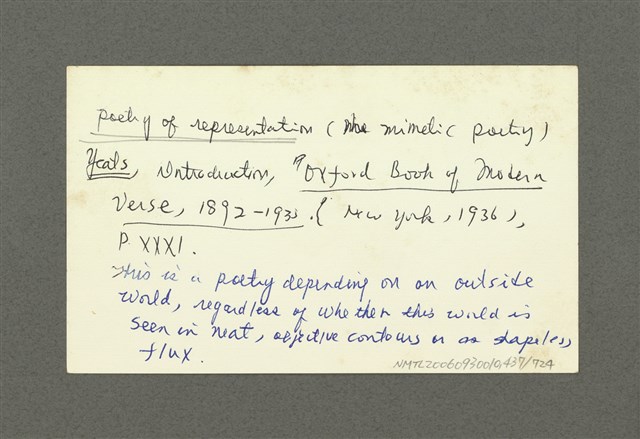 poetry of representation ( mimetic poetry )
Yeats, Introduction, "Oxford Book of Modern
Verse, 1892-1935. ( New York, 1936 ),
P. XXXI.
This is a poetry depending on an outside
world, regardless of whether this world is
seen in neat, objective contours or as shapeless
flux.
NMTL20060930010,437/724